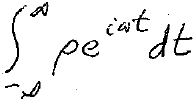 ∫_{-∞}^{∞} ρe^{iωt}dt